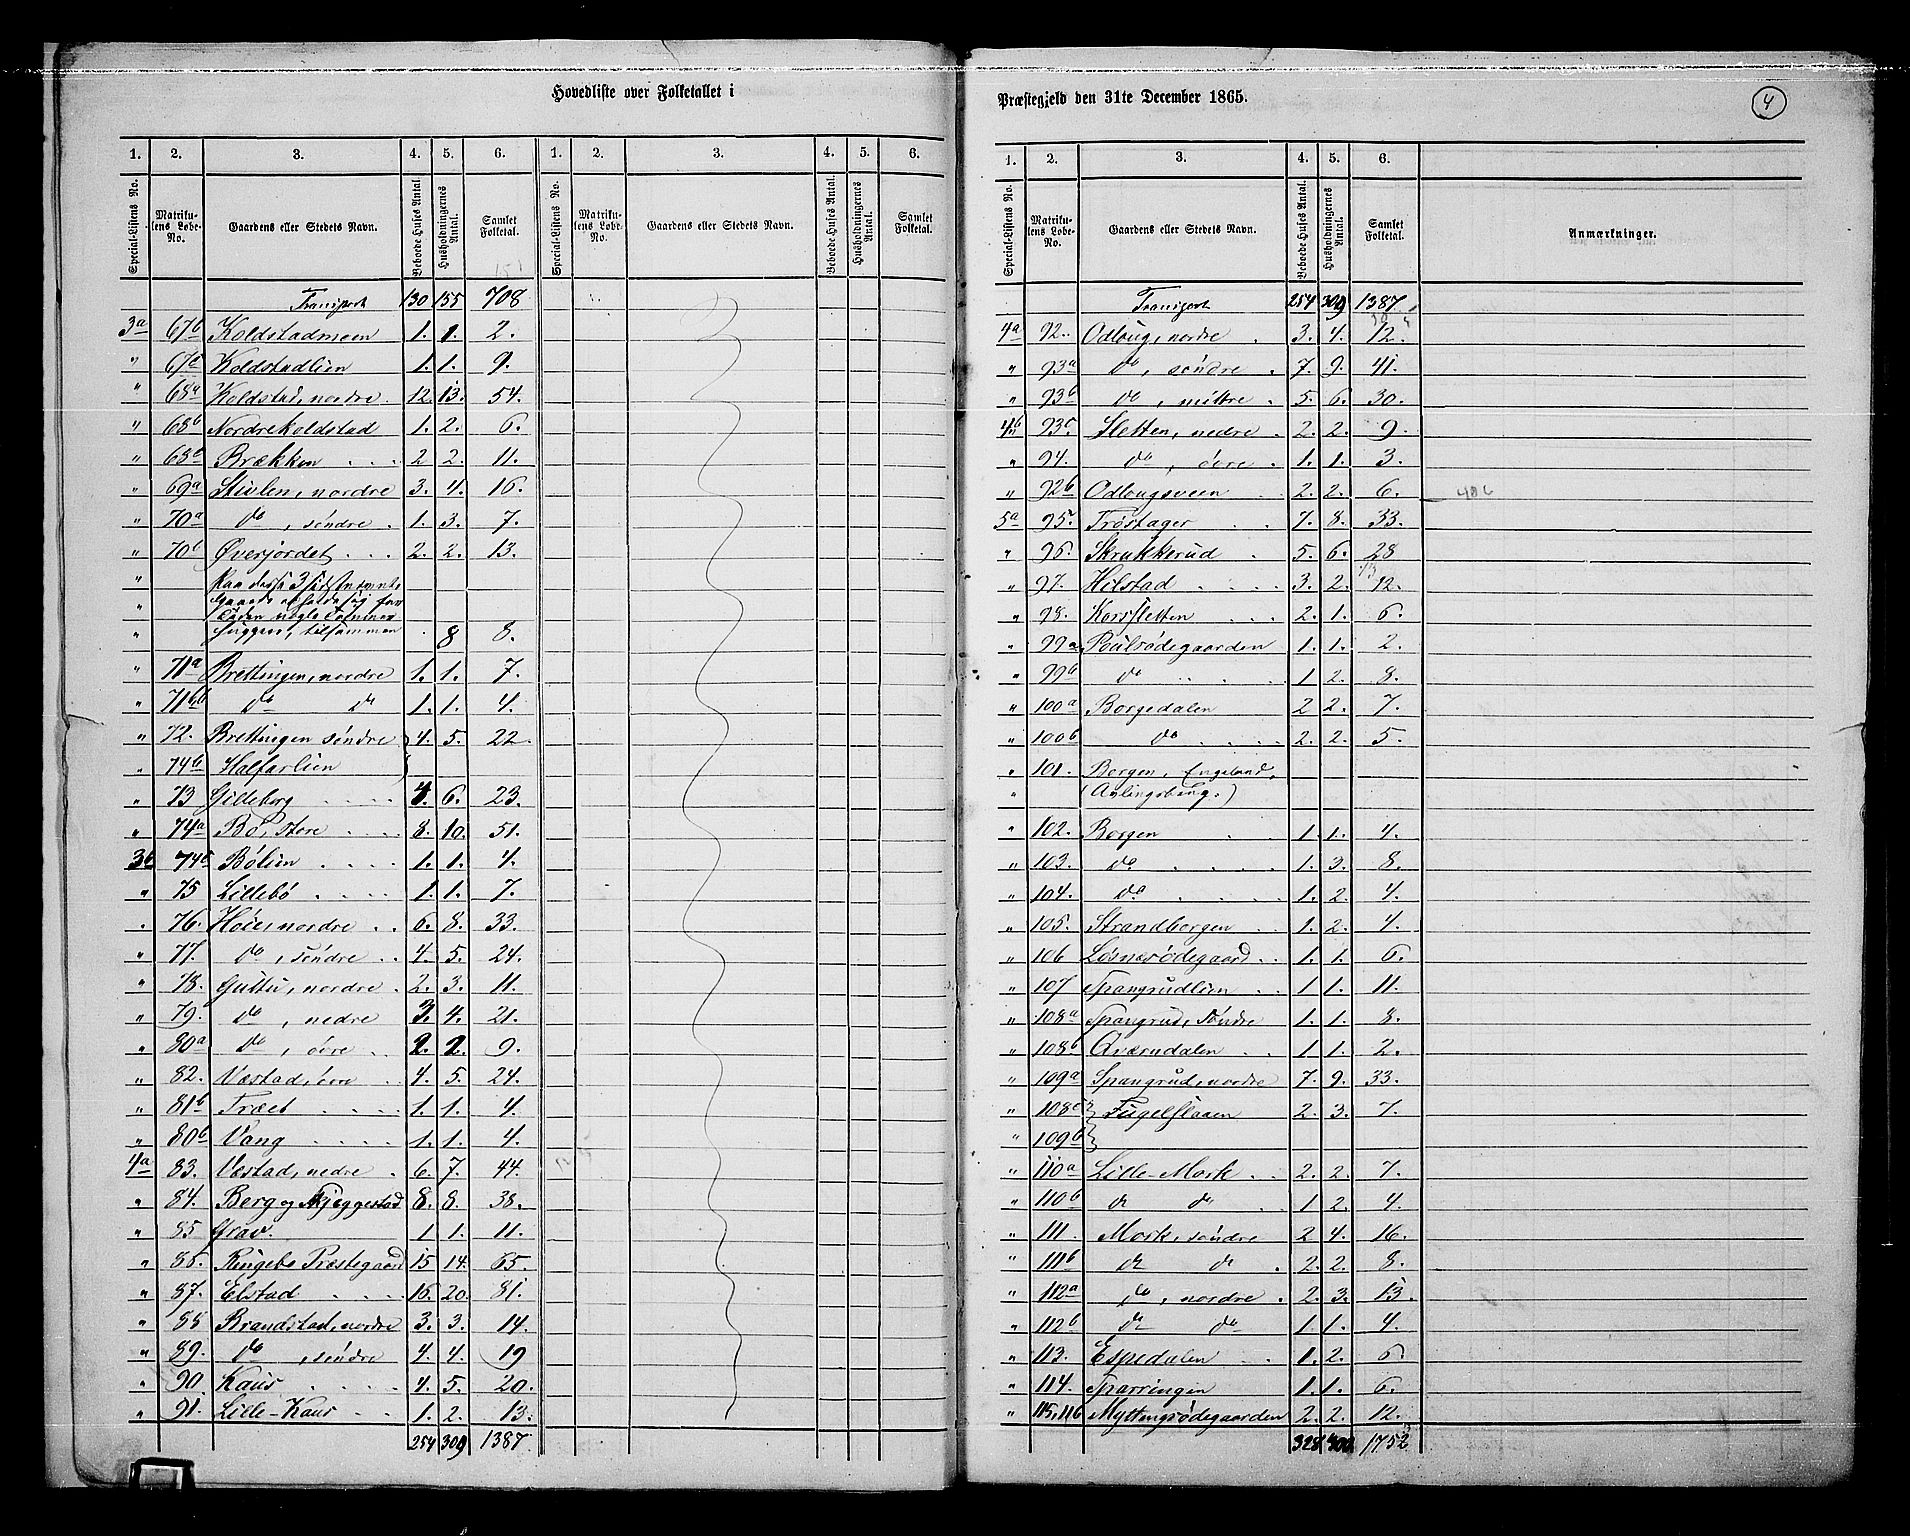 Hovedliste over Folketallet i
1. 2. 3. 4. 5. 6. 1. 2. 3. 4. 5. 6.
Special-Listens No. Matrikulens Løbe-No. Gaardens eller Stedets Navn. Beboede Huses Antal. Husholdningernes Antal. Samlet Folketal. Special-Listens No. Matrikulens Løbe-No. Gaardens eller Stedets Navn. Beboede Huses Antal. Husholdningernes Antal. Samlet Folketal.
Transport 130 155 708
3a 67b Koldstadmoen 1. 1. 2.
" 67c Koldstadlien 1. 1. 9.
" 68a Koldstad, nordre 12. 13. 54.
" 68b Nordrekoldstad 1. 2. 6.
" 68c Brækken 2 2. 11.
" 69a Stivlen, nordre 3. 4. 16.
" 70a do, søndre 1. 3. 7.
" 70b Øverjordet 2. 2. 13.
" Paa disse 3 sidstnævnte
" Gaarde opholde sig for
Tiden nogle Tømmer-
" huggere, tilsammen 8 8.
" 71a Brettingen, nordre 1. 1. 7.
" 71b do do 1. 1. 4.
" 72. Brettingen søndre 4. 5. 22.
" 74b Halfarlien
" 73 Gilleberg 4. 6. 23.
" 74a Bø, store 8. 10. 51.
3b 74c Bølien 1. 1. 4.
" 75 Lillebø 1. 1. 7.
" 76. Høie, nordre 6. 8. 33.
" 77. do, søndre 4. 5. 24.
" 78. Guttu, nordre 2. 3. 11.
" 79. do, nedre 3. 4. 21.
" 80a do, øvre 2. 2. 9.
" 82. Væstad, øvre 4. 5. 24.
" 81b Træet 1. 1. 4.
" 80b Vang 1. 1. 4.
4a 83. Væstad, nedre 6. 7. 44.
" 84. Berg og Skjeggestad 8. 8. 38.
" 85 Grav. 1 1. 11.
" 86. Ringebo Præstegaard 15 14. 65.
" 87. Elstad 16. 20. 81.
" 88 Brandstad, nordre 3. 3. 14.
" 89. do, søndre 4. 4. 19
" 90. Kaus 4. 5. 20.
" 91. Lille-Kaus 1. 2. 13.
254 309 1387.
Præstegjeld den 31te December 1865.
4
1. 2. 3. 4. 5. 6.
Special-Listens No. Matrikulens Løbe-No. Gaardens eller Stedets Navn. Beboede Huses Antal. Husholdningernes Antal. Samlet Folketal. Anmærkninger.
Transport 254 309 1387
4a 92. Odloug, nordre 3. 4. 12.
" 93a do, søndre 7. 9. 41.
" 93b do, mittre 5. 6. 30.
4b 93c Sletten, nedre 2. 2. 9.
" 94. do, øvre 1. 1. 3.
" 92b Odlougsveen 2. 2. 6. 486
5a 95. Trøstager 7. 8. 33.
" 96. Skrukkerud 5. 6. 28
" 97. Hilstad 3. 2. 12.
" 98. Korsfletten 2. 1. 6.
" 99a Poulsødegaarden 1. 1. 2.
" 99b do 1 2. 8.
" 100a Borgedalen 2 2. 7.
" 100b do 2. 2. 5.
" 101. Borgen, Engeland,
"
" 102. Borgen 1. 1. 4.
" 103. do 1. 3. 8.
" 104. do 1. 2 4.
" 105. Strandborgen 1. 2. 4.
" 106 Løsnesødegaard 1. 1. 6.
" 107 Spangrudlien 1 1. 11.
" 108a Spangrud, søndre 1. 1. 8.
" 108b 1 1. 2.
" 109a Spangrud, nordre 7. 9. 33.
" 108c Fugelflaaen 2. 3. 7.
" 109b
" 110a Lille-Mork 2. 2. 7.
" 110b do do 1 2. 4.
" 111. Mork, søndre 2 4. 16.
" 111b do do 2. 2. 8.
" 112a do, nordre 2. 3. 13.
" 112b do do 1. 1. 4.
" 113. Espedalen 1. 2. 6.
" 114. Sparringen 1. 1. 6.
" 115, 116 Myttingsødegaarden 2. 2. 12.
328 400. 1752